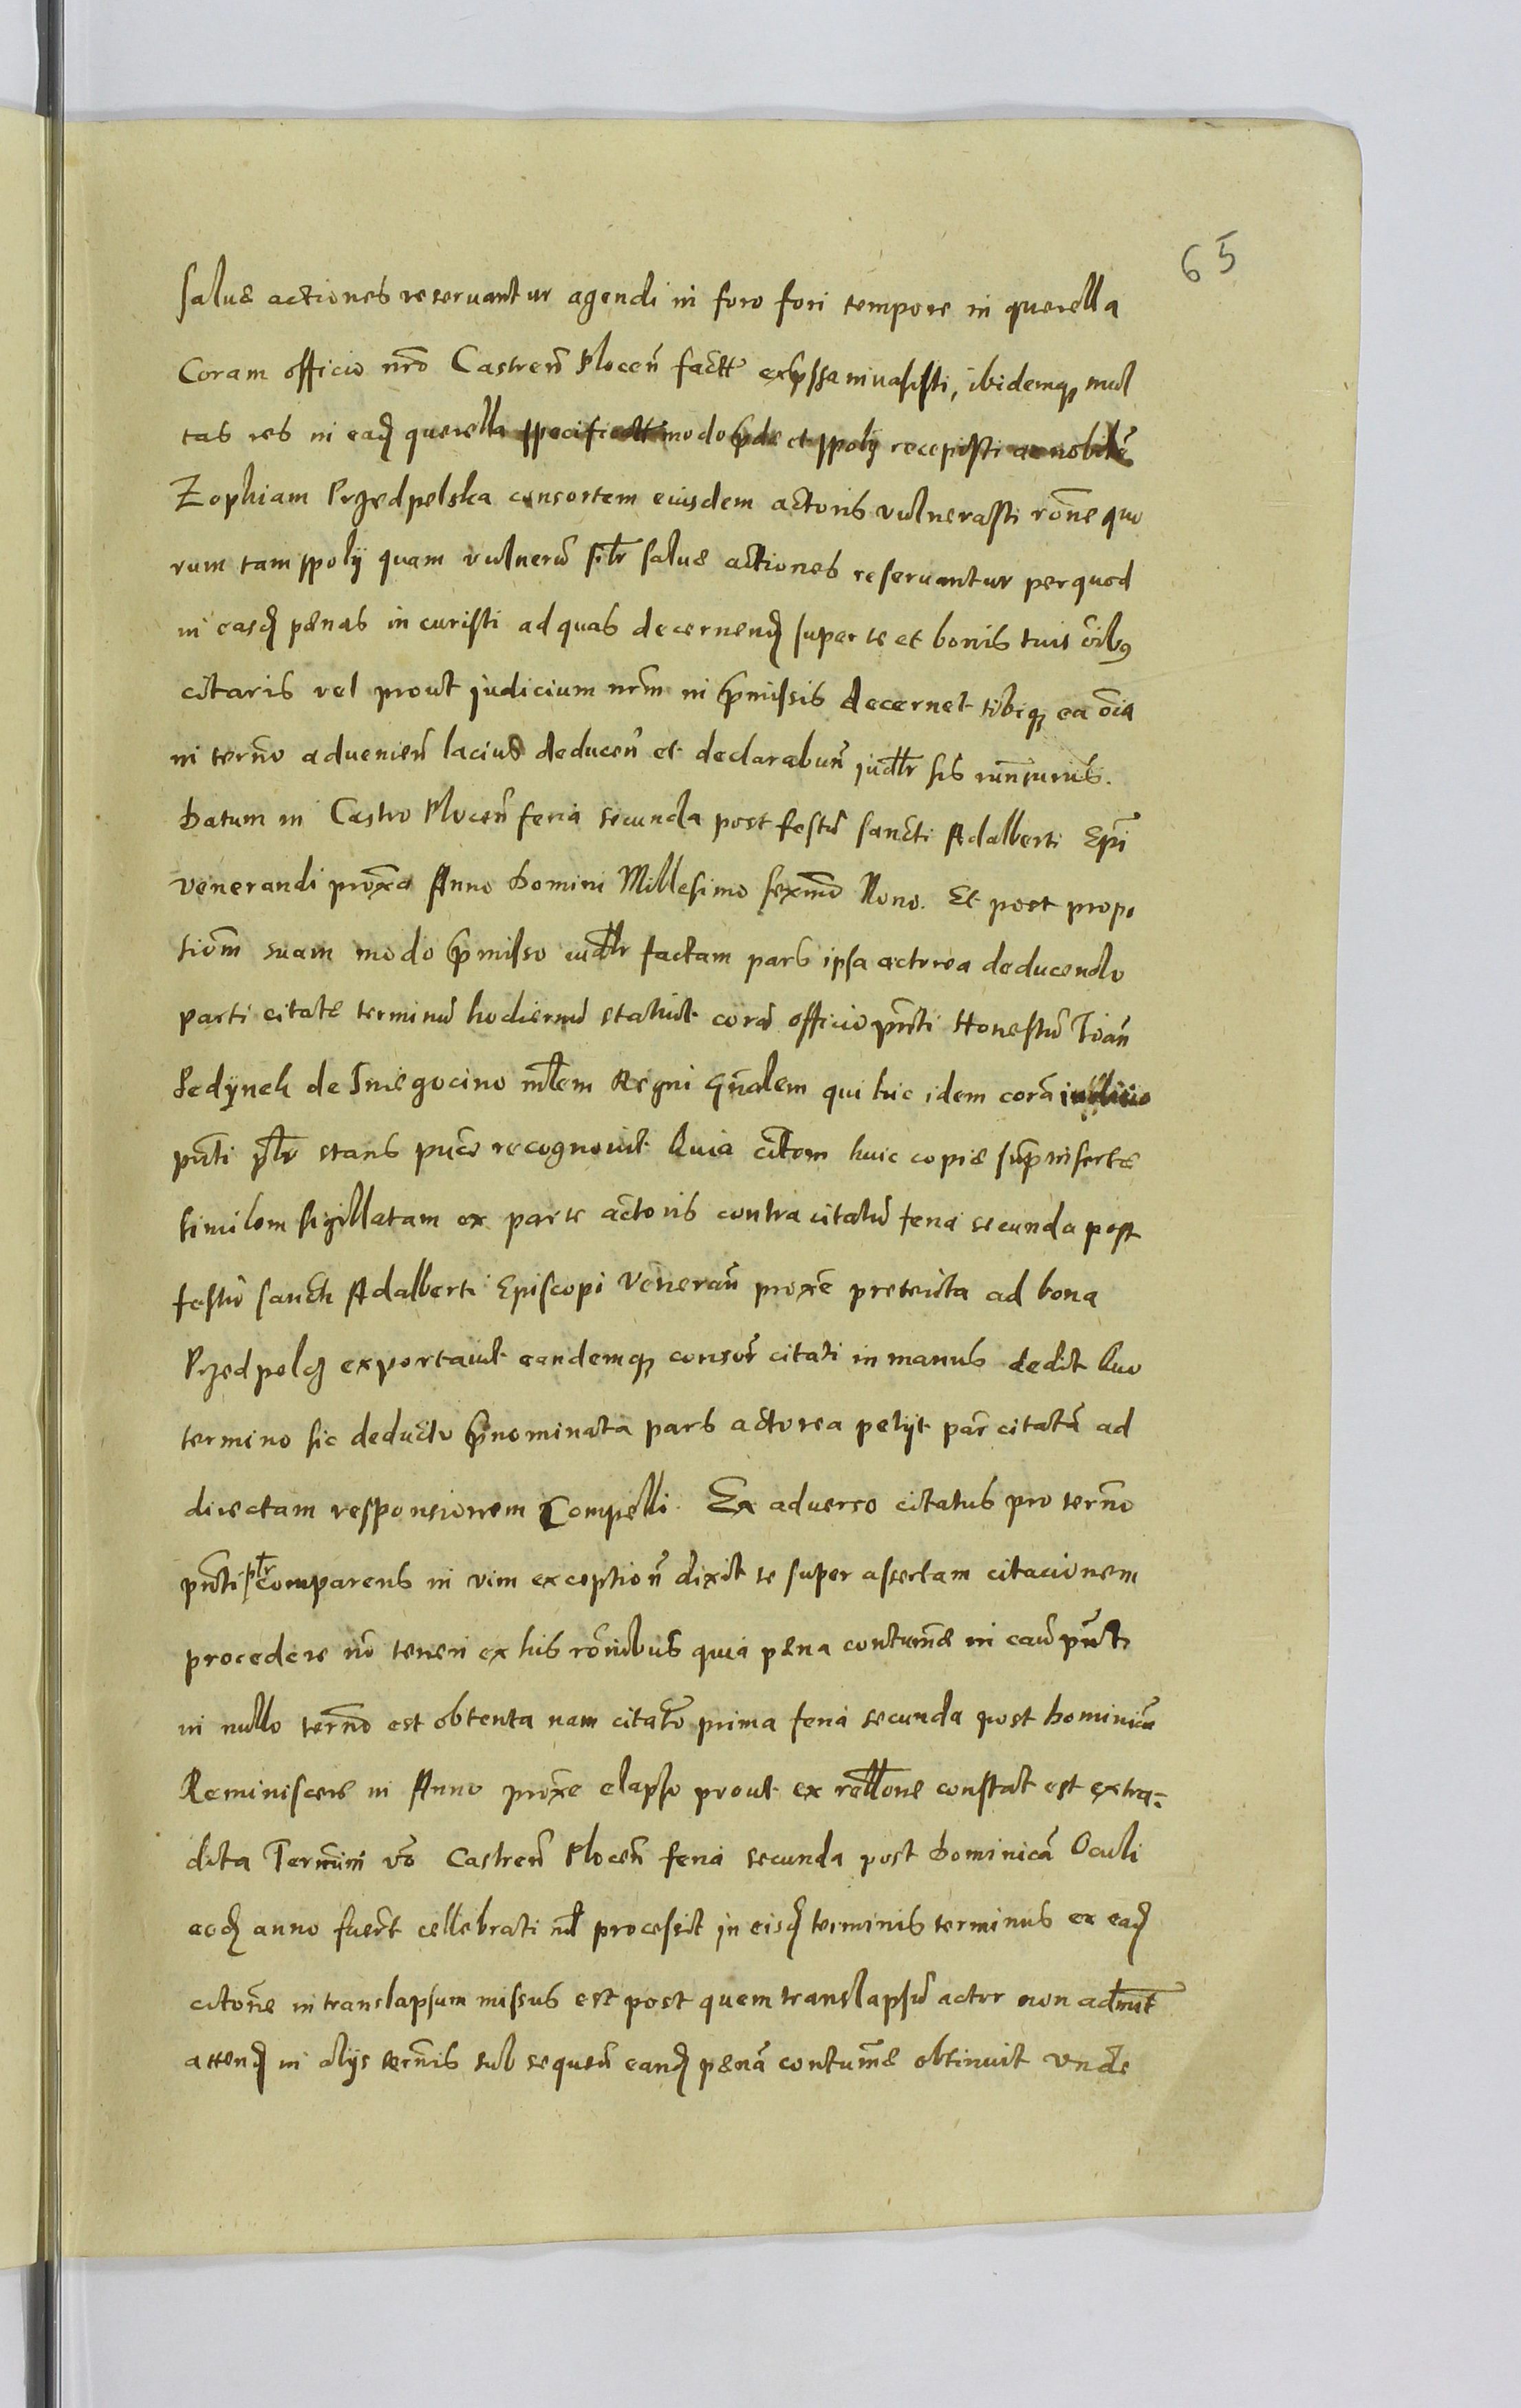 65
saluæ actiones reseruantur agendi in foro fori tempore in querella
Coram officio nrõ Castreñ Ploceñ factt exp̃ssa inuasisti, ibidemq3 mul
tas res in eadꝫ querella specificatt modo p̃dæ et spolij recepisti ac nobilẽ
Zophiam Przedpelska consortem eiusdem actoris vulnerasti rõne quo
rum tam spolij quam vulnerũ siłr saluæ actiones reseruantur per quod
in easdꝫ pænas incuristi ad quas decernendꝫ super te et bonis tuis õibꝯ
citaris vel prout judicium nrm̃ in p̃missis decernet tibiq3 ea õia
in terño adueñieñ lacius deduceñ et declarabuñ judłr sis
Datum in Castro Ploceñ feria secunda post festũ sancti Adalberti Ep̃i
venerandi proxã Anno Domini Millesimo sexm̃o Nono. Et post propo
siõm suam modo p̃misso judłr factam pars ipsa actorea deducendo
parti citatæ terminũ hodiernũ statuit corã officio pñti Honestũ Joañ
Pedÿnek de Sniegocino młem Regni Gñalem qui hic idem corã iudicio
pñti płr stans puce recognouit Quia citõem huic copiæ sup̃insertæ
similem sigillatam ex parte actoris contra citatũ feria secunda post
festũ sancti Adalberti Episcopi Venerañ proxẽ preterita ad bona
Przedpelcꝫ exportauit eandemq3 consor̃ citati in manus dedit Quo
termino sic deducto p̃nominata pars actorea petijt par̃ citatã ad
directam responsionem Compelli. Ex aduerso citatus pro terño
pñti płr comparens in vim exceptioñ dixit se super assertam citacionem
procedere nõ teneri ex his rõnibus quia pæna contumãe in cau pñti
in nullo terño est obtenta nam citatõ prima feria secunda post Dominicã
Reminiscere in Anno proxẽ elapso prout ex rełłone constat est extra=
dita Termini võ Castreñ Ploceñ feria secunda post Dominicã Oculi
eodꝫ anno fuer̃t cellebrati nł processit in eisdꝫ terminis terminus ex eadꝫ
citõne in translapsum missus est post quem translapsũ actor non
attendꝫ in alijs terñis subsequeñ eandꝫ pænã contumãe obtinuit vnde